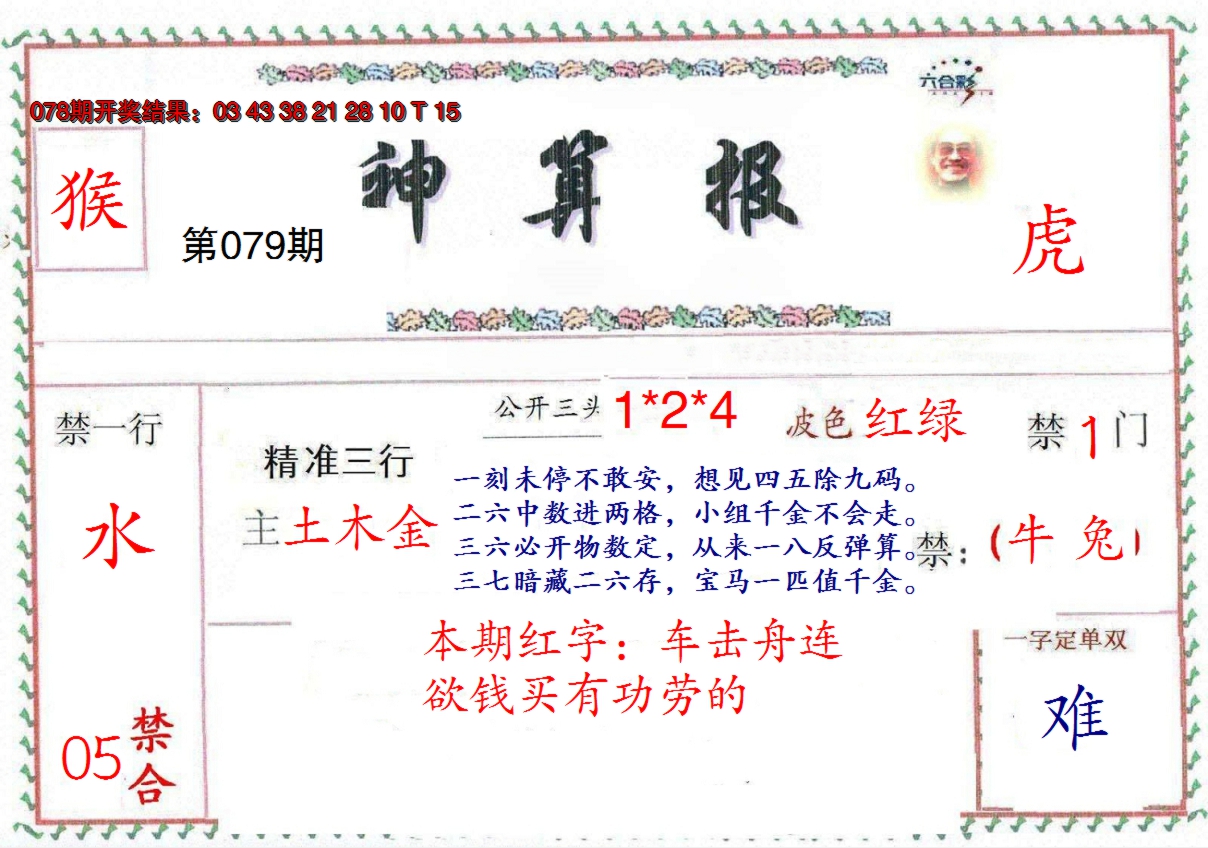 六合彩
078期开奖结果：03 43 38 21 28 10 T 15
神算报
猴
第079期
虎
公开三头 1*2*4
波色 红绿
禁 1 门
禁一行
水
精准三行
主 土木金
一刻未停不敢安，想见四五除九码。
二六中数进两格，小组千金不会走。
三六必开物数定，从来一八反弹算。
三七暗藏二六存，宝马一匹值千金。
禁：（牛 兔）
本期红字：车击舟连
欲钱买有功劳的
一字定单双
难
05 禁合